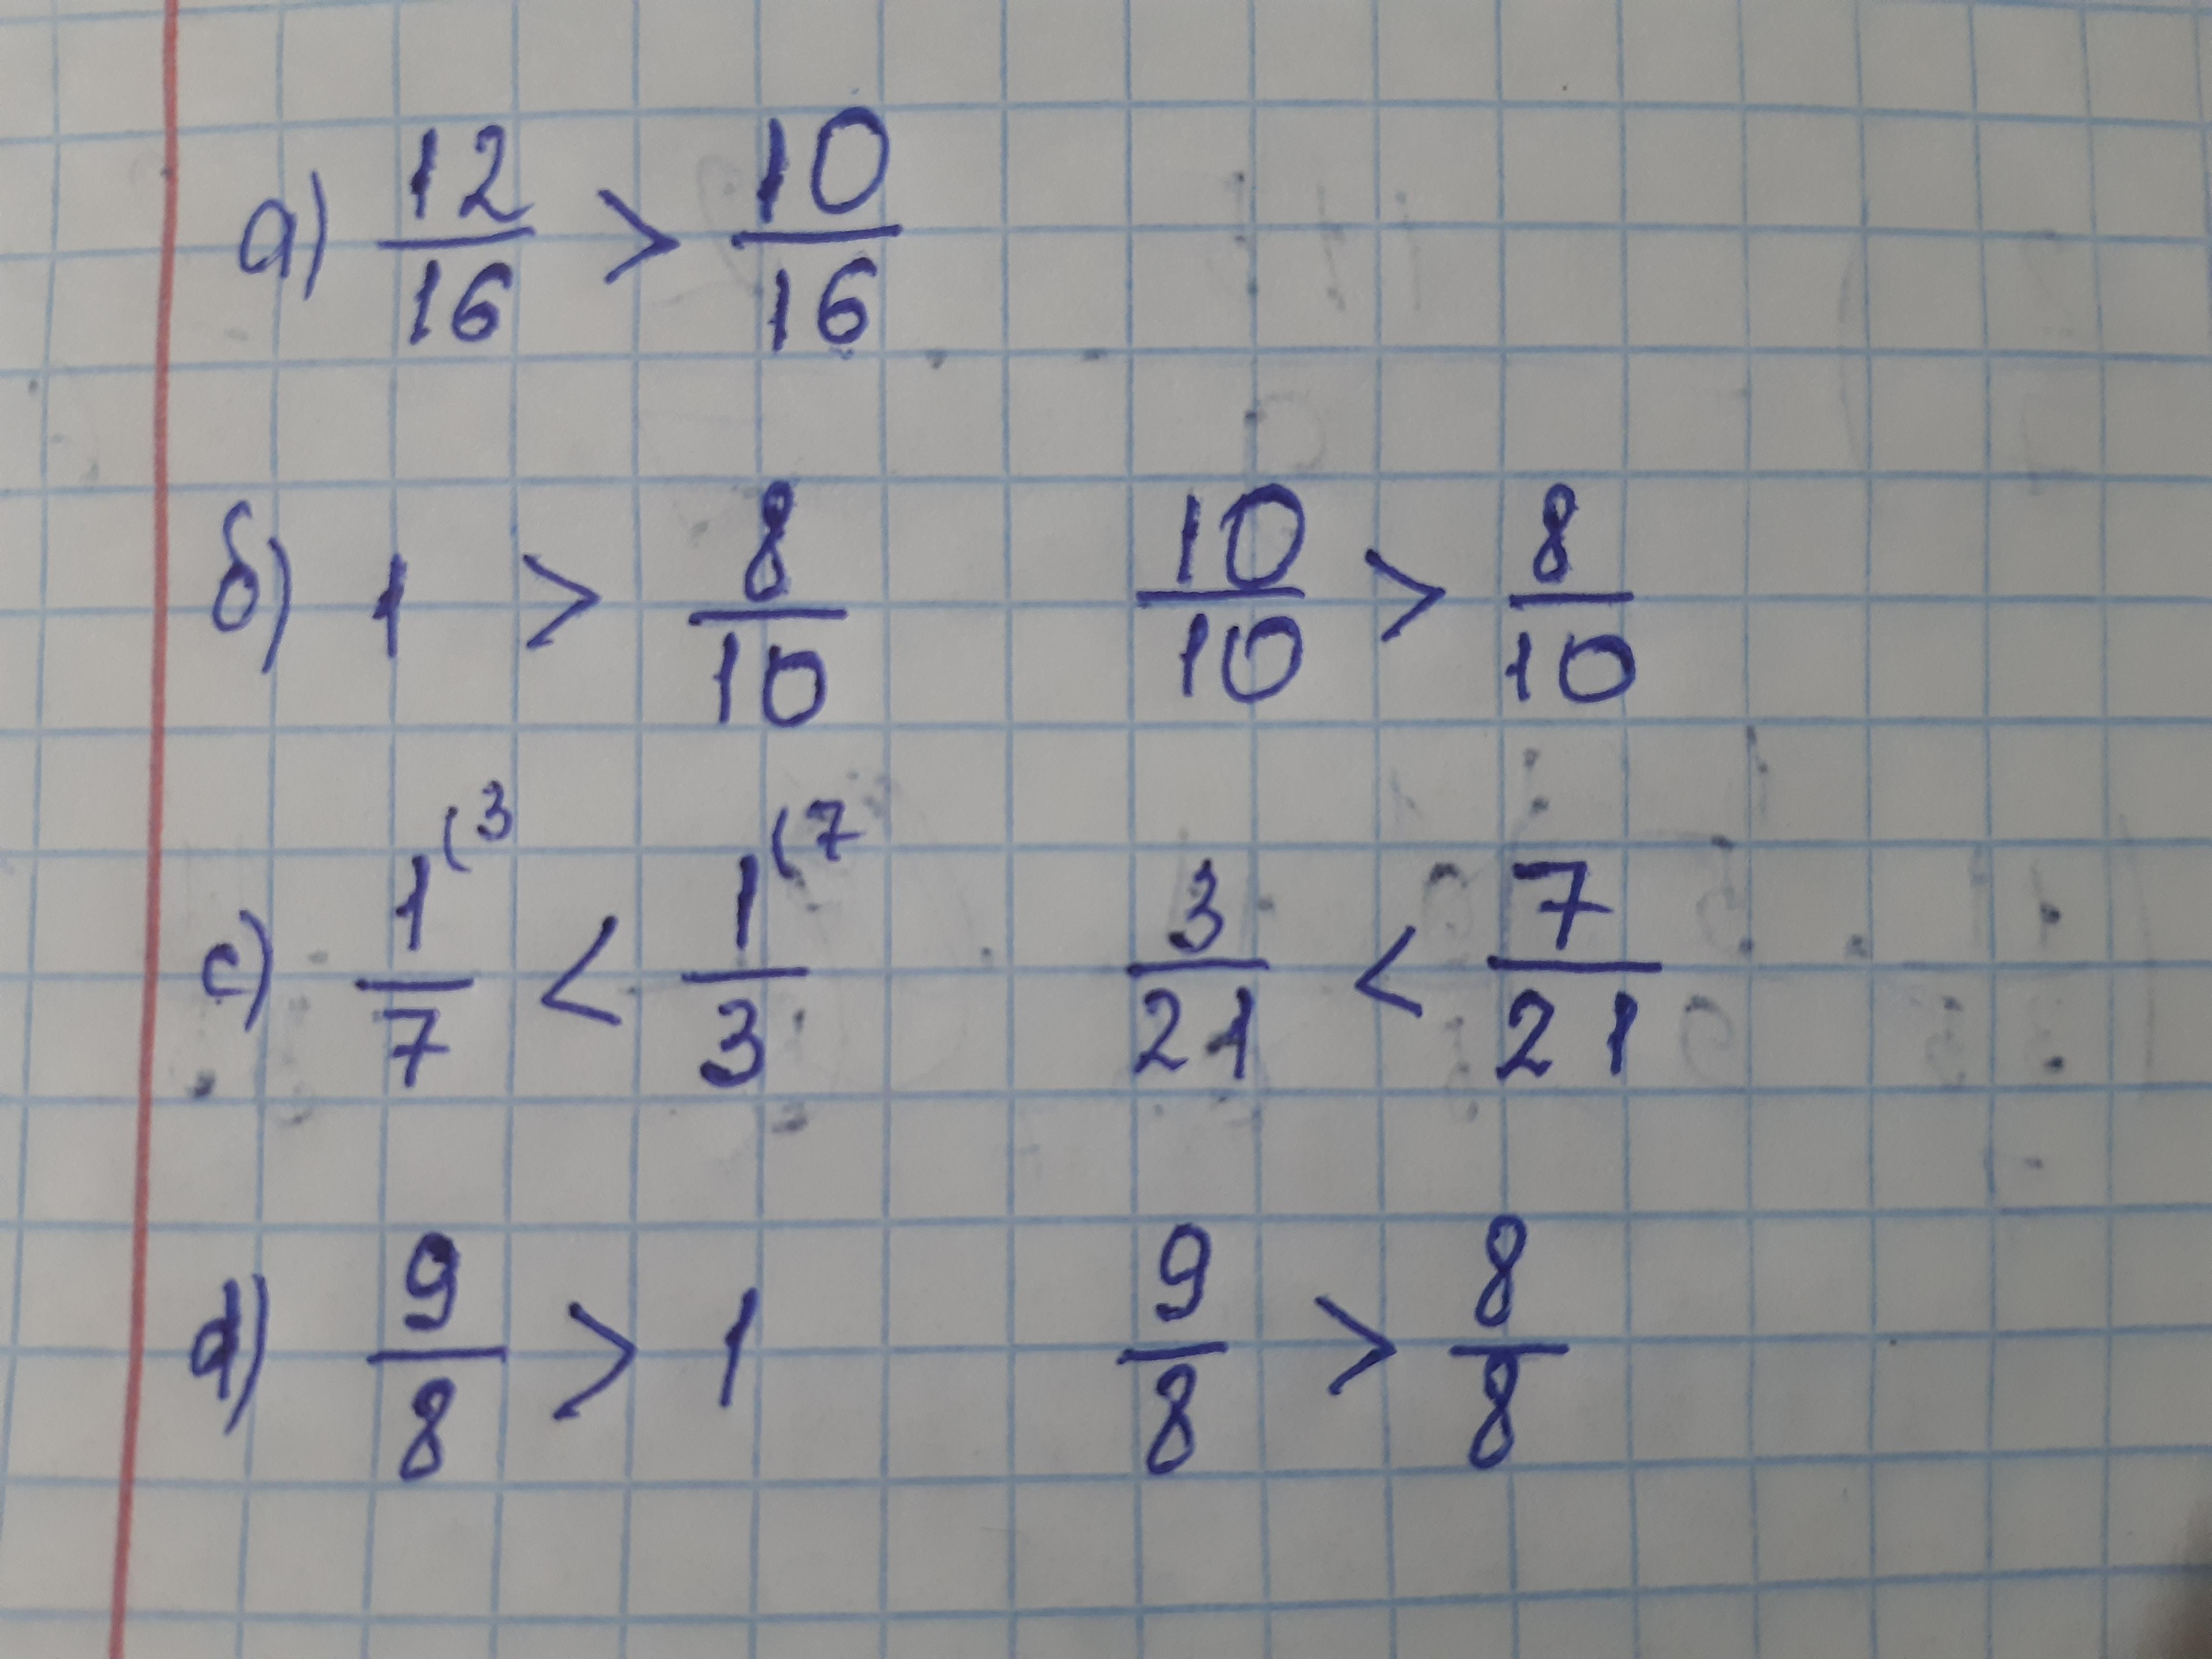 а) 12/16 > 10/16
б) 1 > 8/10 10/10 > 8/10
с) 1(3/7 < 1(7/3 3/21 < 7/21
d) 9/8 > 1 9/8 > 8/8